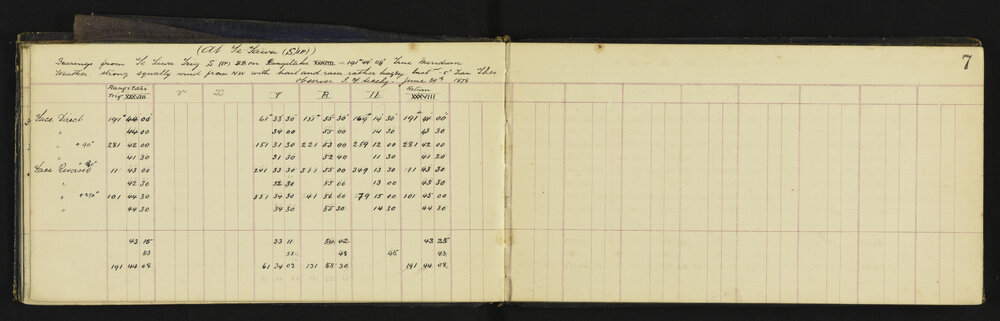 (At Te Tawa (SHP))
7
Bearings from Te Tawa Trig S BB on Rangitahi XXXVIII — 191° 44' 08" True Meridian
Weather strong squally wind from NW with hail and rain rather hazy 5"
Observer June 29th 1878
Rangitahi Trig XXXVIII V X T B D Return XXXVIII
Face Direct 191° 44 00 61° 33 30 131° 55 30 169° 14 30 191° 44 00
" 44 00 34 00 55 00 14 30 43 30
" +90° 281 42 00 151 31 30 221 53 00 259 12 00 281 42 00
" 41 30 31 30 52 40 11 30 41 20
Face Reversed 11 43 00 241 33 30 55 00 349 13 30 43 30
" 42 30 32 30 55 00 13 00 43 30
" +270° 101 44 30 331 34 30 41 56 00 79 15 00 101 45 00
" 44 30 34 30 55 30 14 30 44 30
43 15 33 11 54 42 43 25
53 51 48 45 43
191 44 08 61 34 02 131 55 30 191 44 08